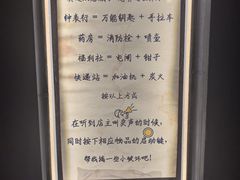 钟表行 = 万能钥匙 + 手拉车
药房 = 消防栓 + 喷壶
福利社 = 电闸 + 钳子
快递站 = 加油机 + 炭火
按以上方式
在听到店主叫卖声的时候,
同时按下相应物品的启动键,
帮我搞一些小破坏吧!